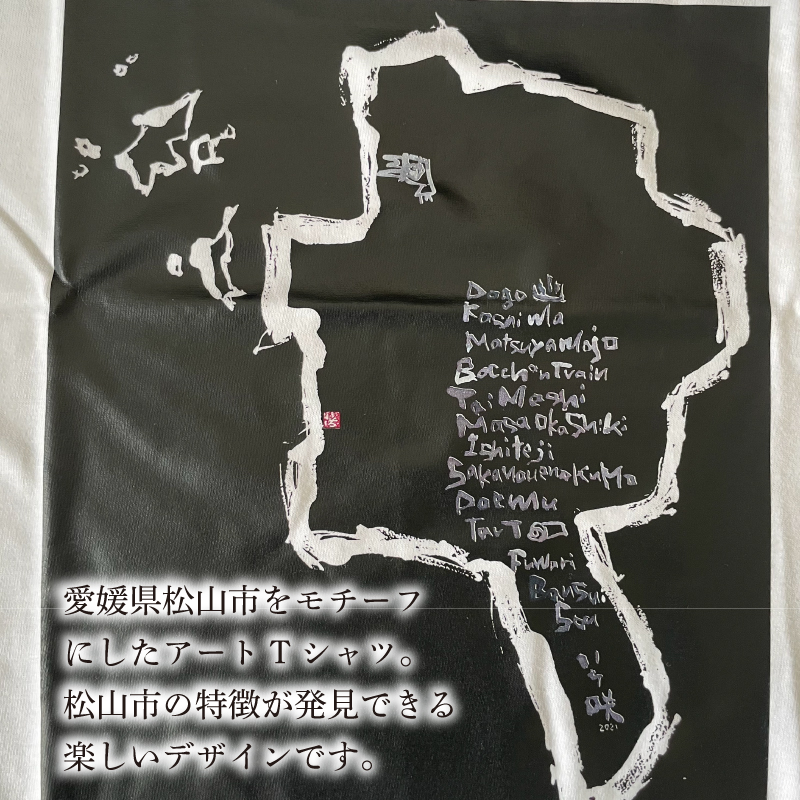 Dogo ♨
Kashima
Matsuyamajo
Bocchan Train
Tai Meshi
Masaoka Shiki
Ishiteji
Sakanouenokumo
Poemu
Tart
Fuwari
Bansui
Sou
2021
愛媛県松山市をモチーフ
にしたアートTシャツ。
松山市の特徴が発見できる
楽しいデザインです。